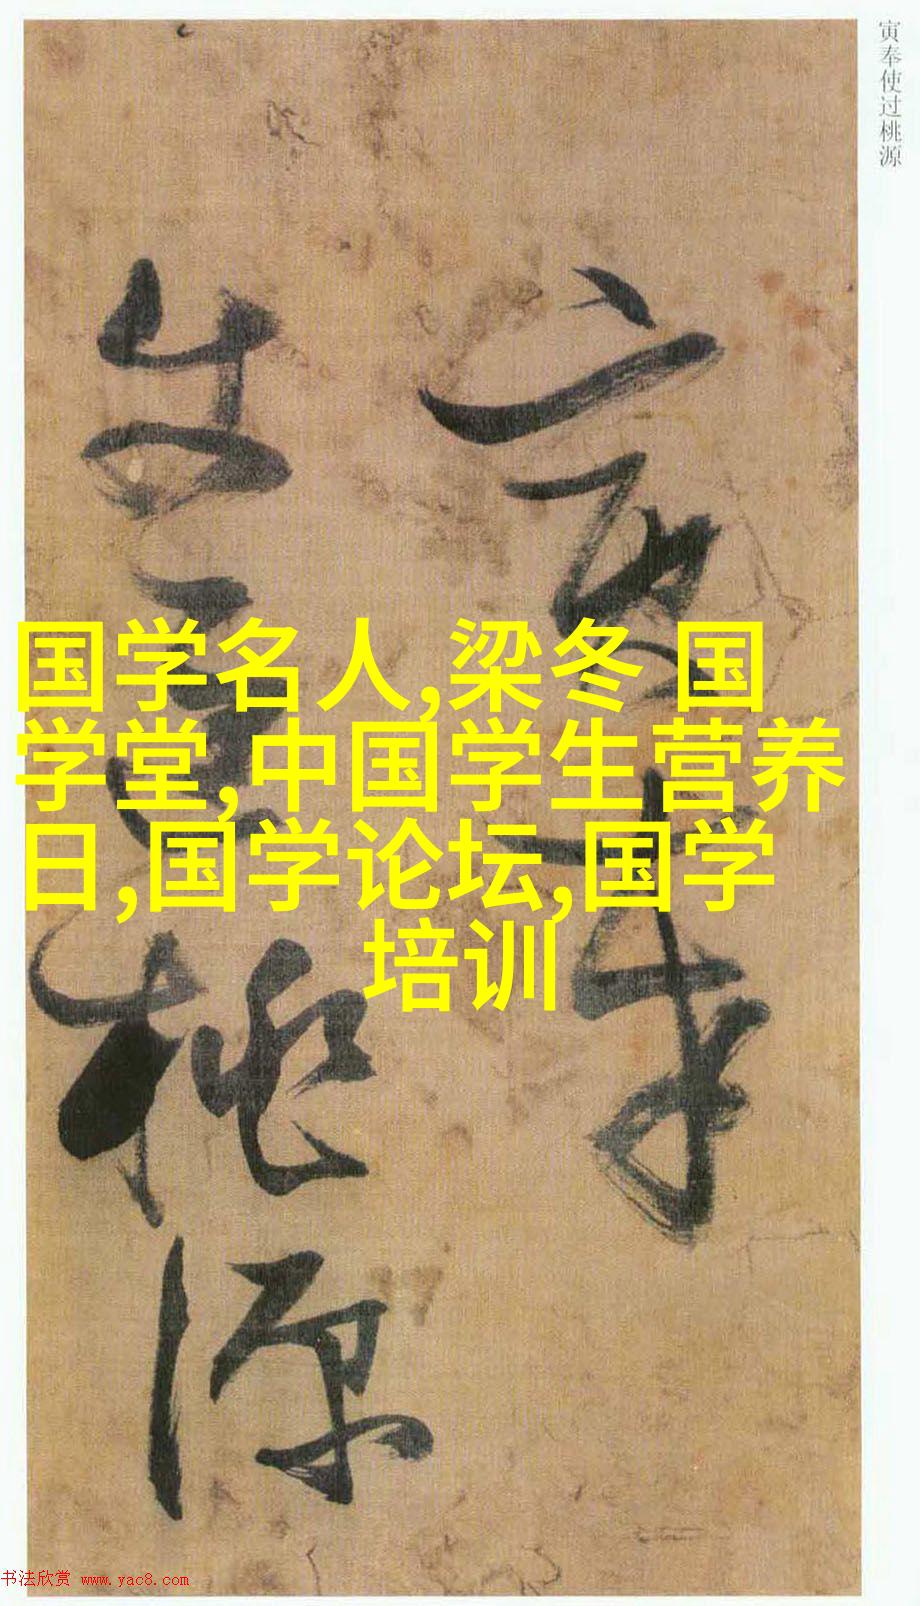 寅奉使过桃源
寅奉
使过桃源
国学名人,梁冬 国
学堂,中国学生营养
日,国学论坛,国学
培训
书法欣赏 www.yac8.com